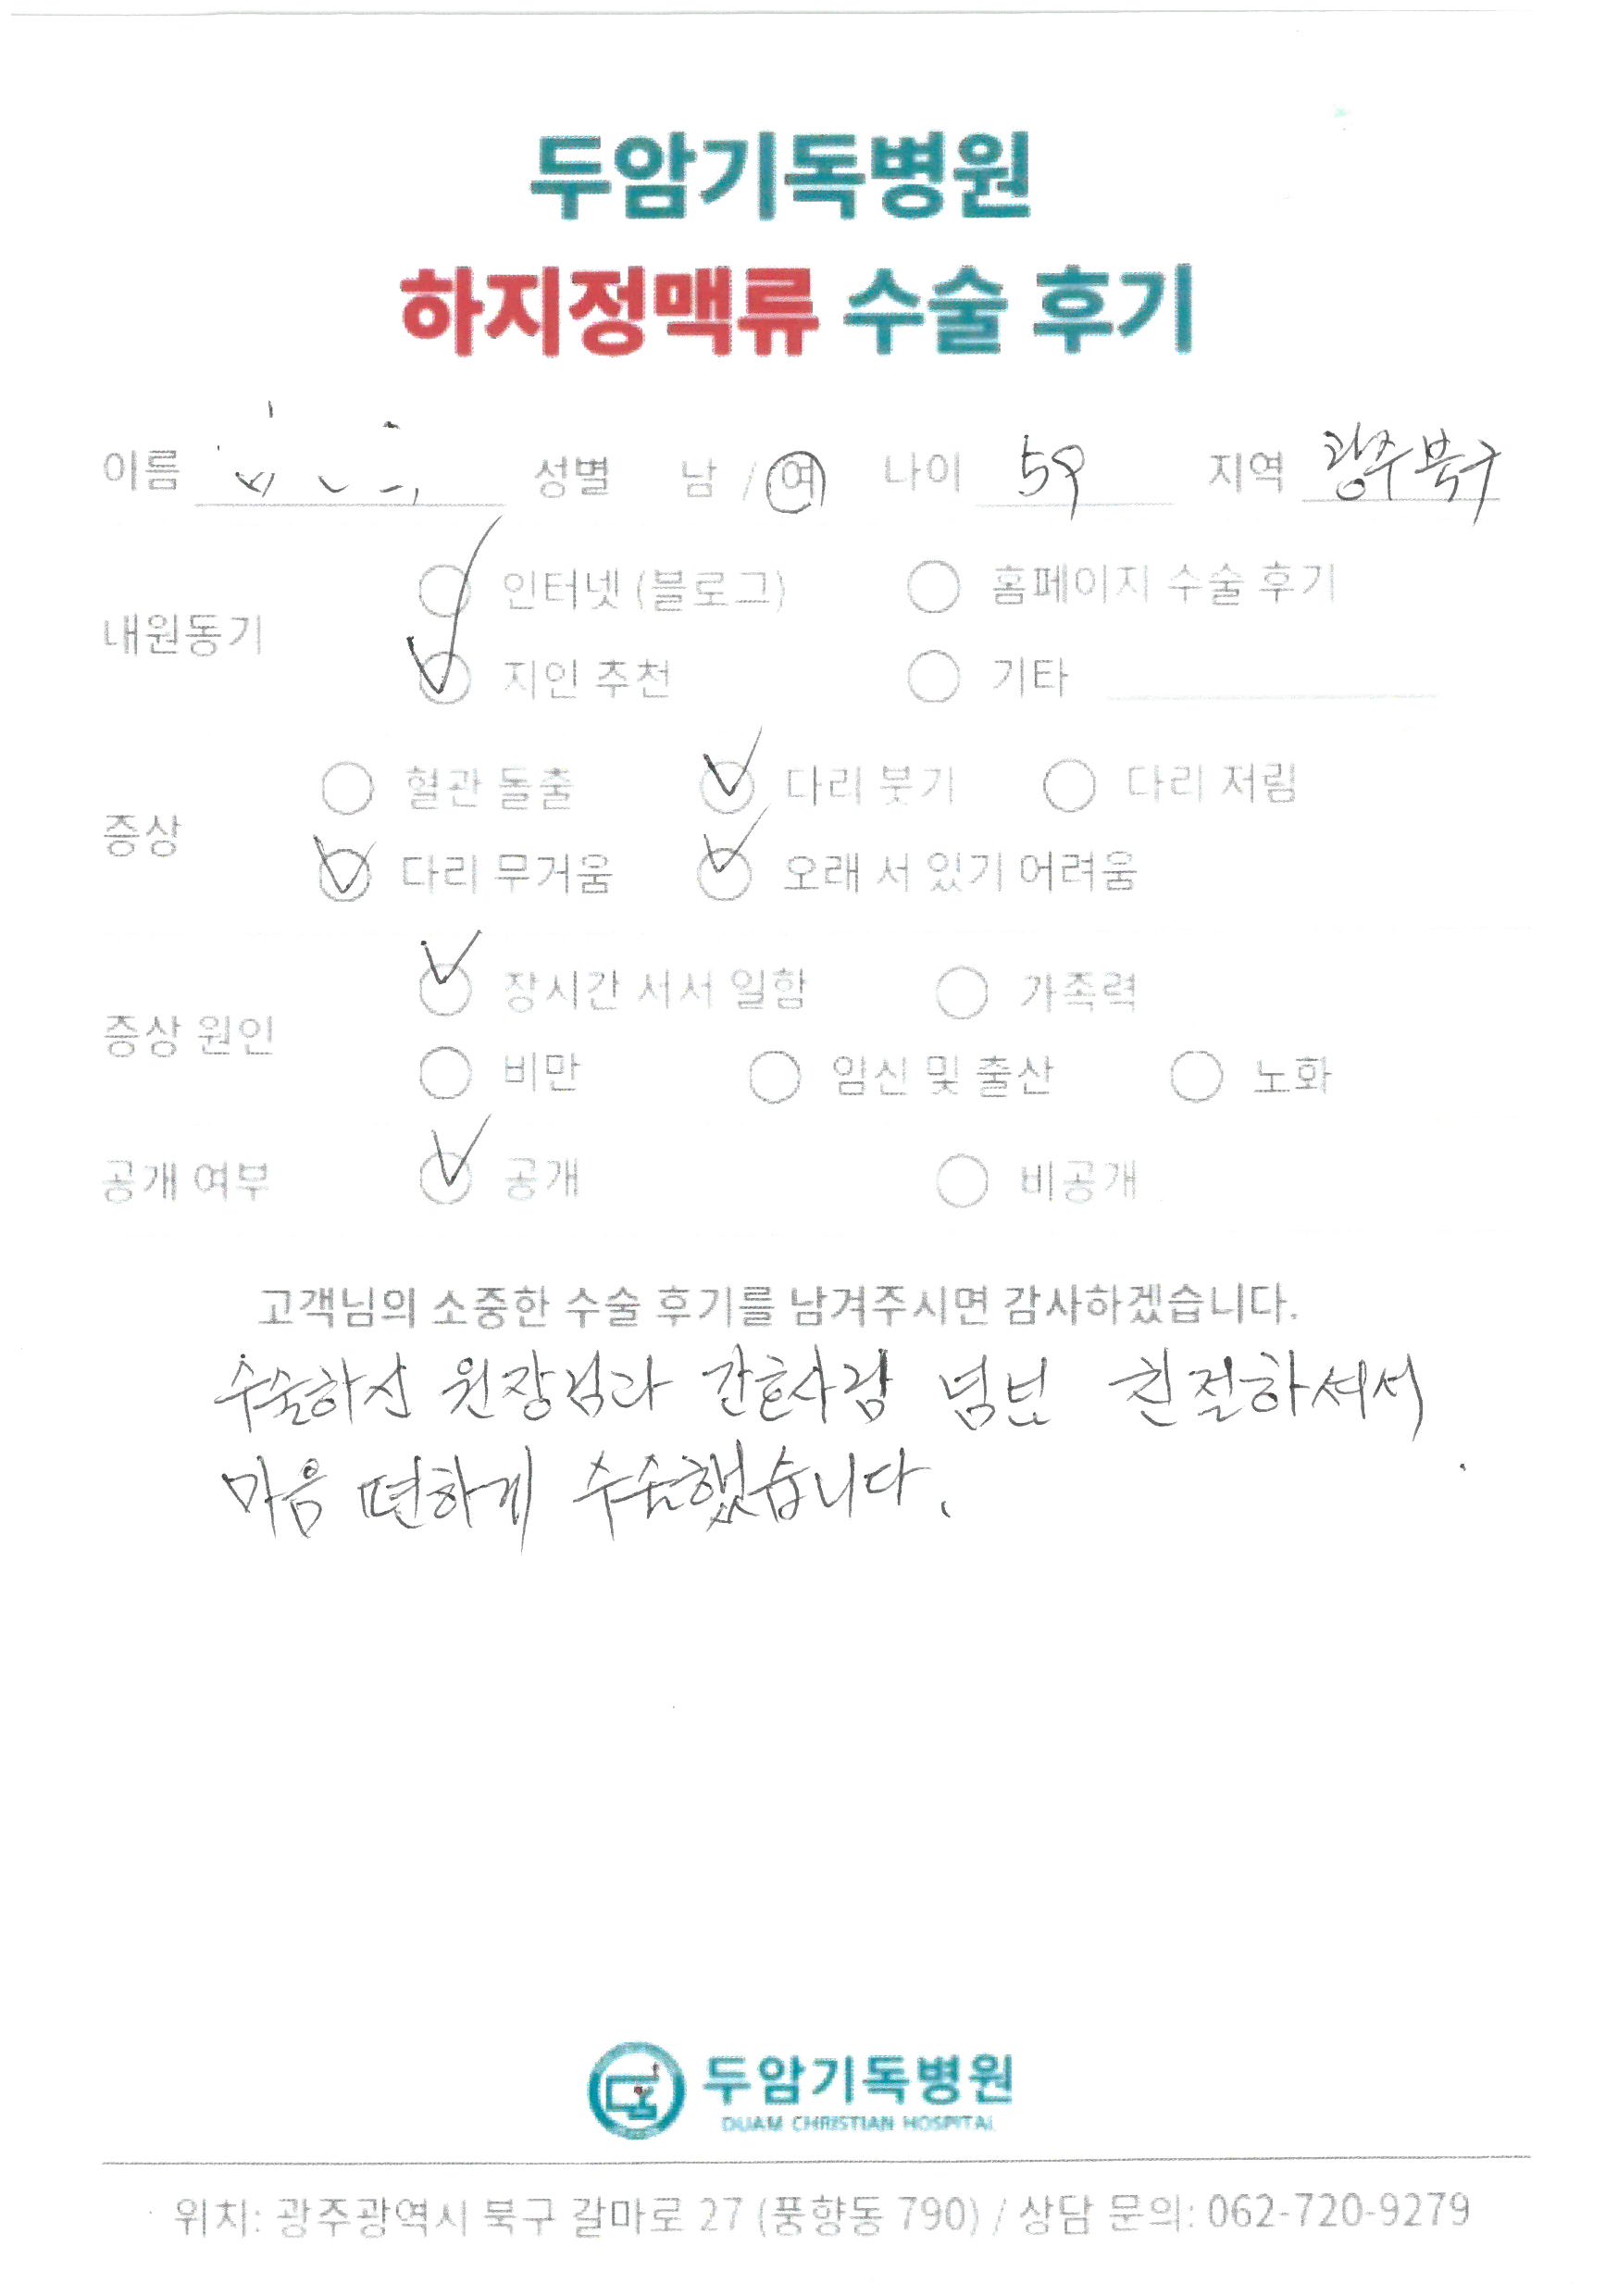 두암기독병원
하지정맥류 수술 후기
이름 성별 남 / 여 나이 59 지역 광주 북구
내원동기
인터넷 (블로그) 홈페이지 수술 후기
지인 추천 기타
증상
혈관 돌출 다리 붓기 다리 저림
다리 무거움 오래 서 있기 어려움
증상 원인
장시간 서서 일함 가족력
비만 임신 및 출산 노화
공개 여부 공개 비공개
고객님의 소중한 수술 후기를 남겨주시면 감사하겠습니다.
수술하신 원장님과 간호사님 넘넘 친절하셔서
마음 편하게 수술했습니다.
두암기독병원
DUAM CHRISTIAN HOSPITAL
위치: 광주광역시 북구 갈마로 27 (풍향동 790) / 상담 문의: 062-720-9279